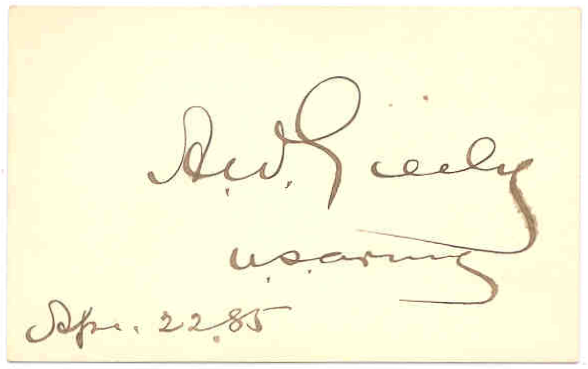 A.W. Greely
U.S. Army
Apr. 22.85